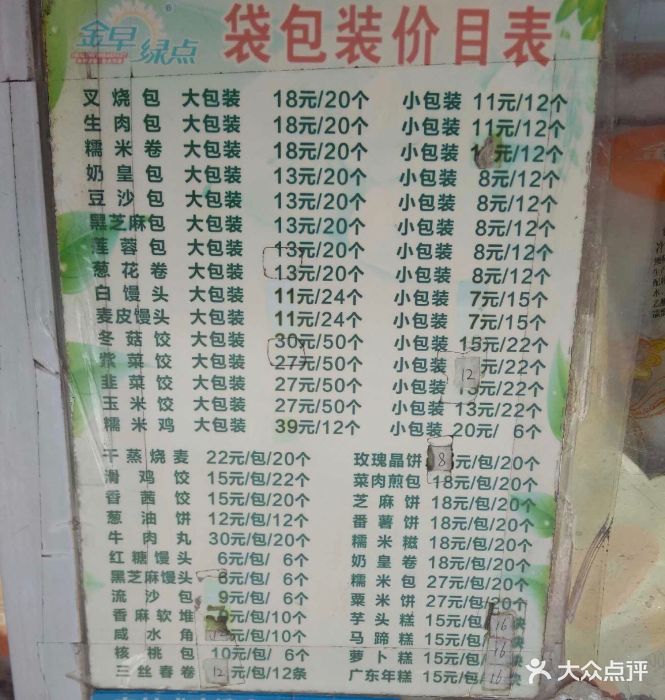 金早绿点 ®
袋包装价目表
叉烧包 大包装 18元/20个 小包装 11元/12个
生肉包 大包装 18元/20个 小包装 11元/12个
糯米卷 大包装 18元/20个 小包装 元/12个
奶皇包 大包装 13元/20个 小包装 8元/12个
豆沙包 大包装 13元/20个 小包装 8元/12个
黑芝麻包 大包装 13元/20个 小包装 8元/12个
莲蓉包 大包装 13元/20个 小包装 8元/12个
葱花卷 大包装 13元/20个 小包装 8元/12个
白馒头 大包装 11元/24个 小包装 7元/15个
麦皮馒头 大包装 11元/24个 小包装 7元/15个
冬菇饺 大包装 30元/50个 小包装 15元/22个
紫菜饺 大包装 27元/50个 小包装 元/22个
韭菜饺 大包装 27元/50个 小包装 12 13元/22个
玉米饺 大包装 27元/50个 小包装 13元/22个
糯米鸡 大包装 39元/12个 小包装 20元/ 6个
干蒸烧麦 22元/包/20个
滑鸡饺 15元/包/22个
香茜饺 15元/包/20个
葱油饼 12元/包/12个
牛肉丸 30元/包/20个
红糖馒头 6元/包/ 6个
黑芝麻馒头 6元/包/ 6个
流沙包 9元/包/ 6个
香麻软堆 元/包/10个
咸水角 元/包/10个
核桃包 10元/包/ 6个
三丝春卷 12元/包/12条
玫瑰晶饼 18元/包/20个
菜肉煎包 18元/包/20个
芝麻饼 18元/包/20个
番薯饼 18元/包/20个
糯米糍 18元/包/20个
奶皇卷 18元/包/20个
糯米包 27元/包/20个
粟米饼 27元/包/20个
芋头糕 15元/包/16块
马蹄糕 15元/包/16
萝卜糕 15元/包/16
广东年糕 15元/包/16
大众点评